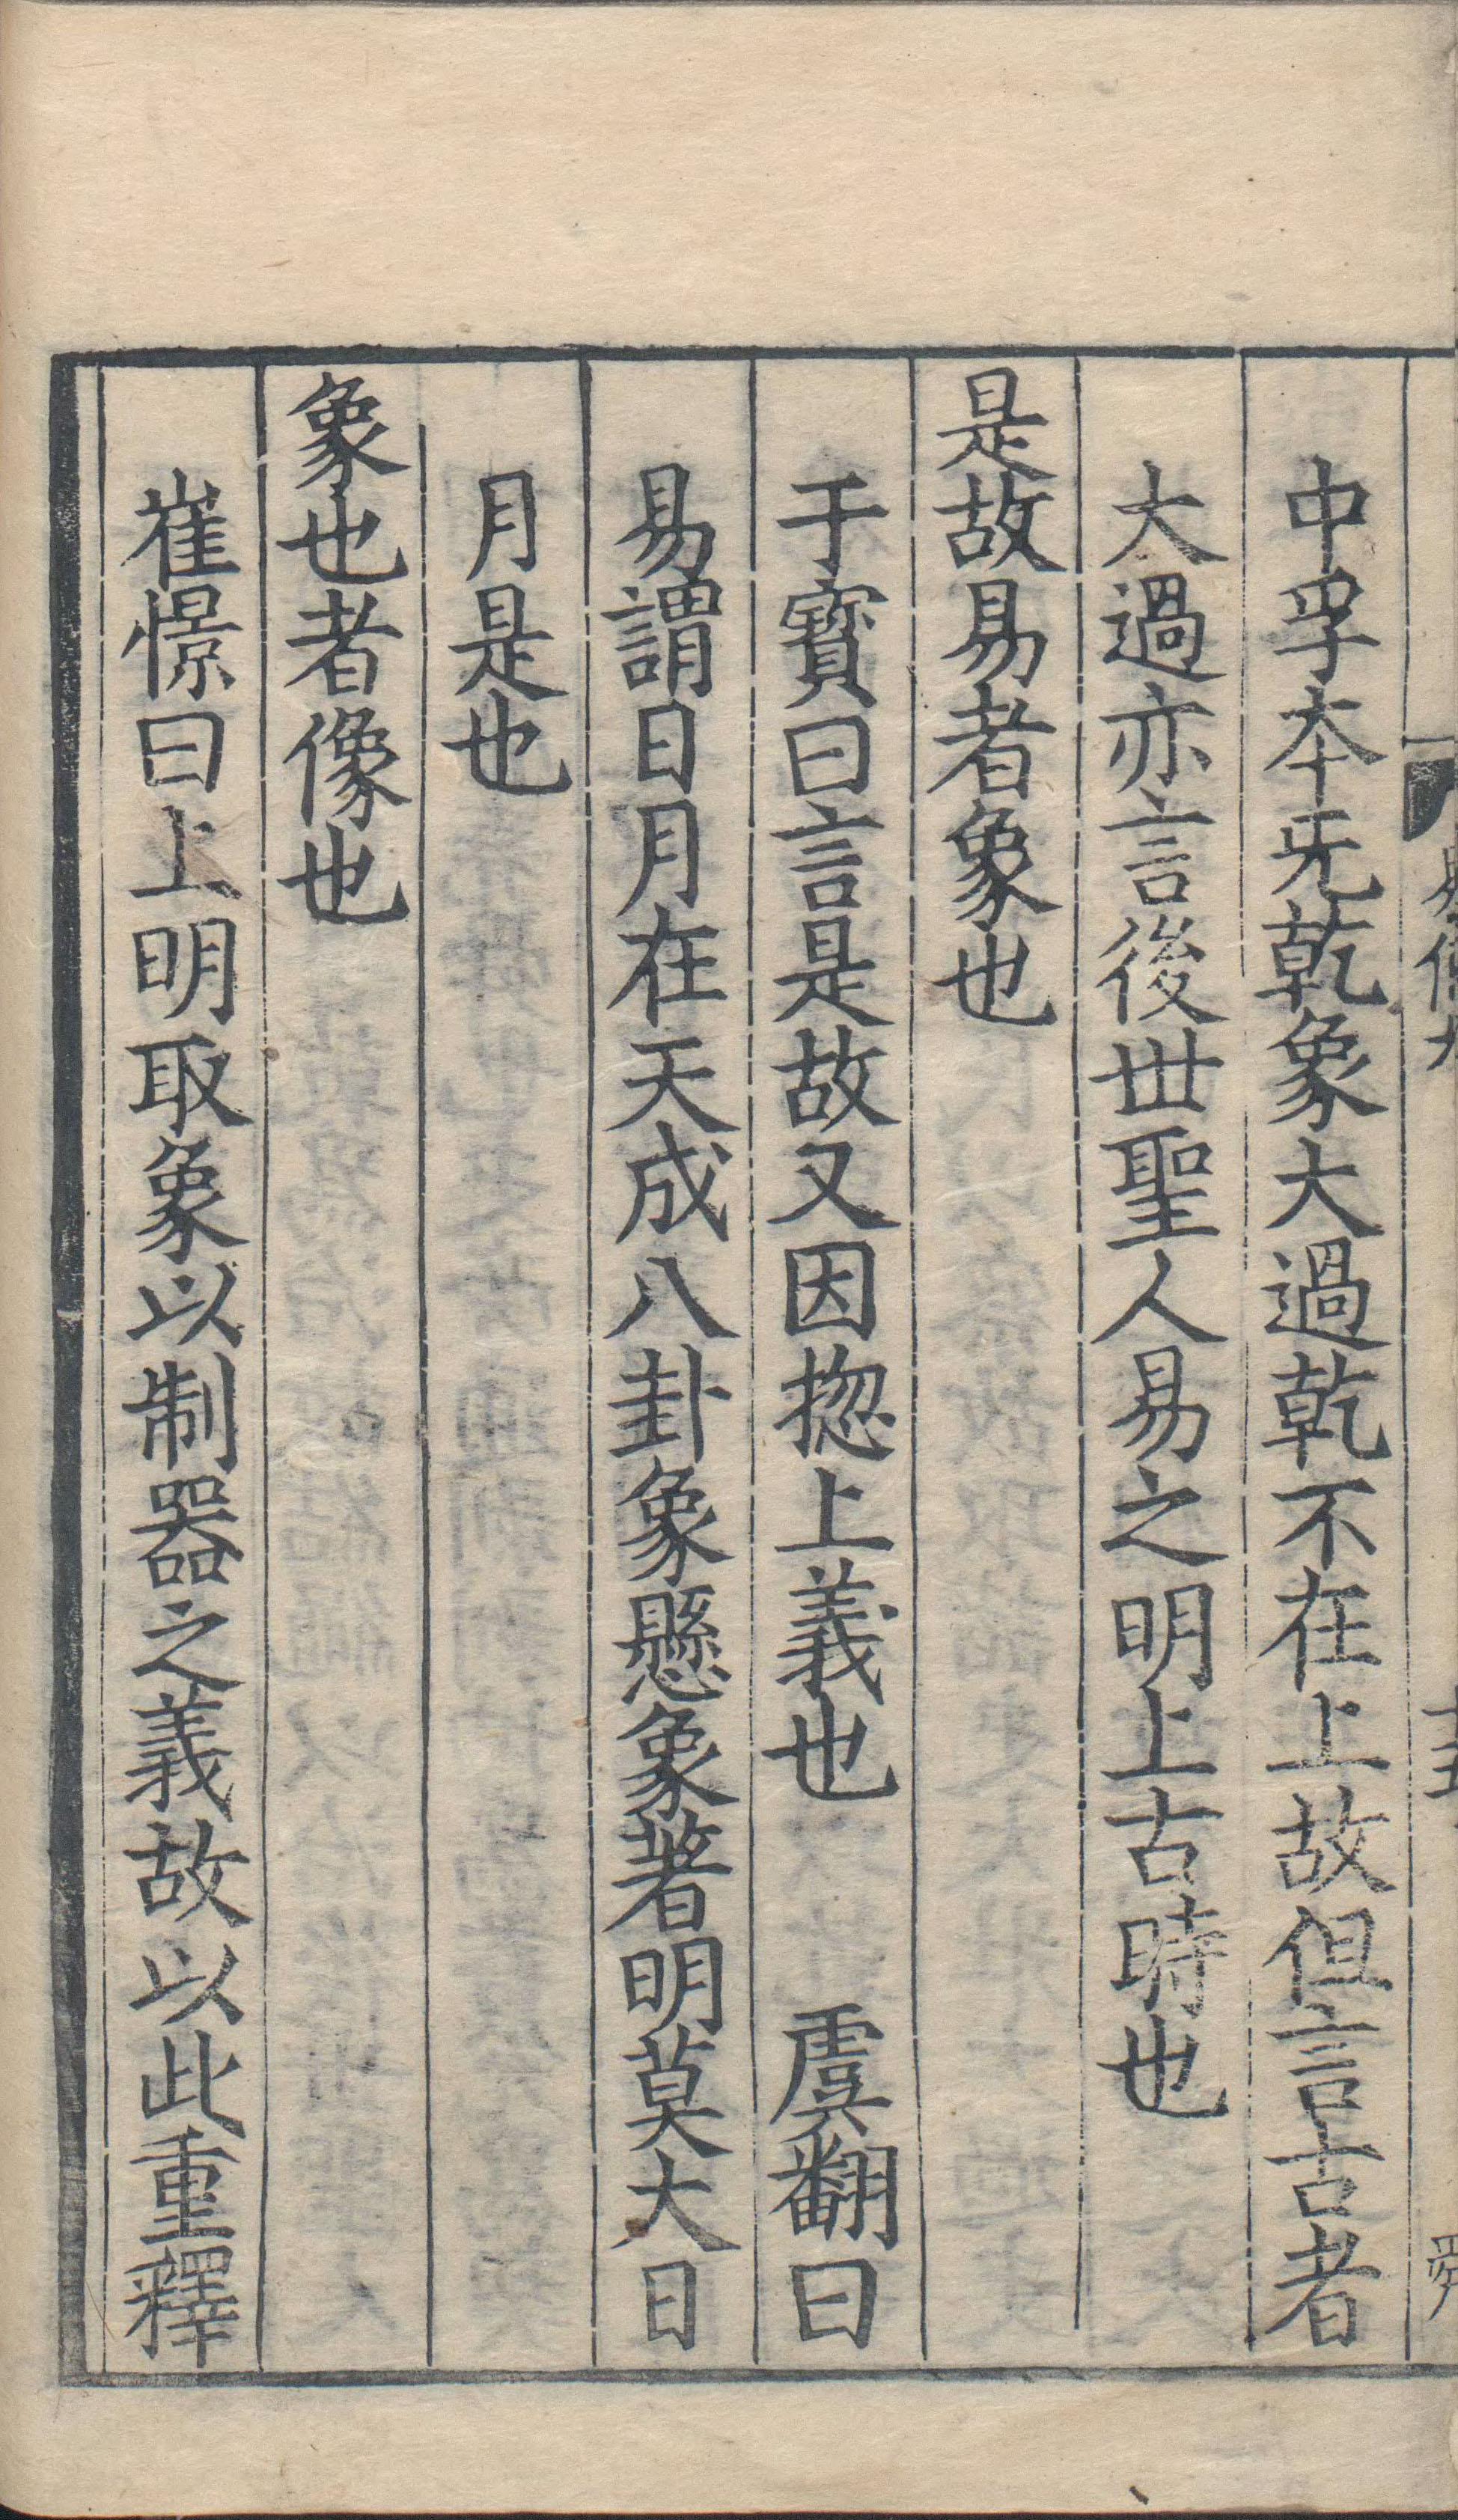 中孚本无乾象大過乾不在上故但言古者
大過亦言後丗聖人易之明上古時也
是故易者象也
于寶曰言是故又因揔上義也　虞翻曰
易謂日月在天成八卦象懸象著明莫大日
月是也
象也者像也
崔憬曰上明取象以制器之義故以此重釋